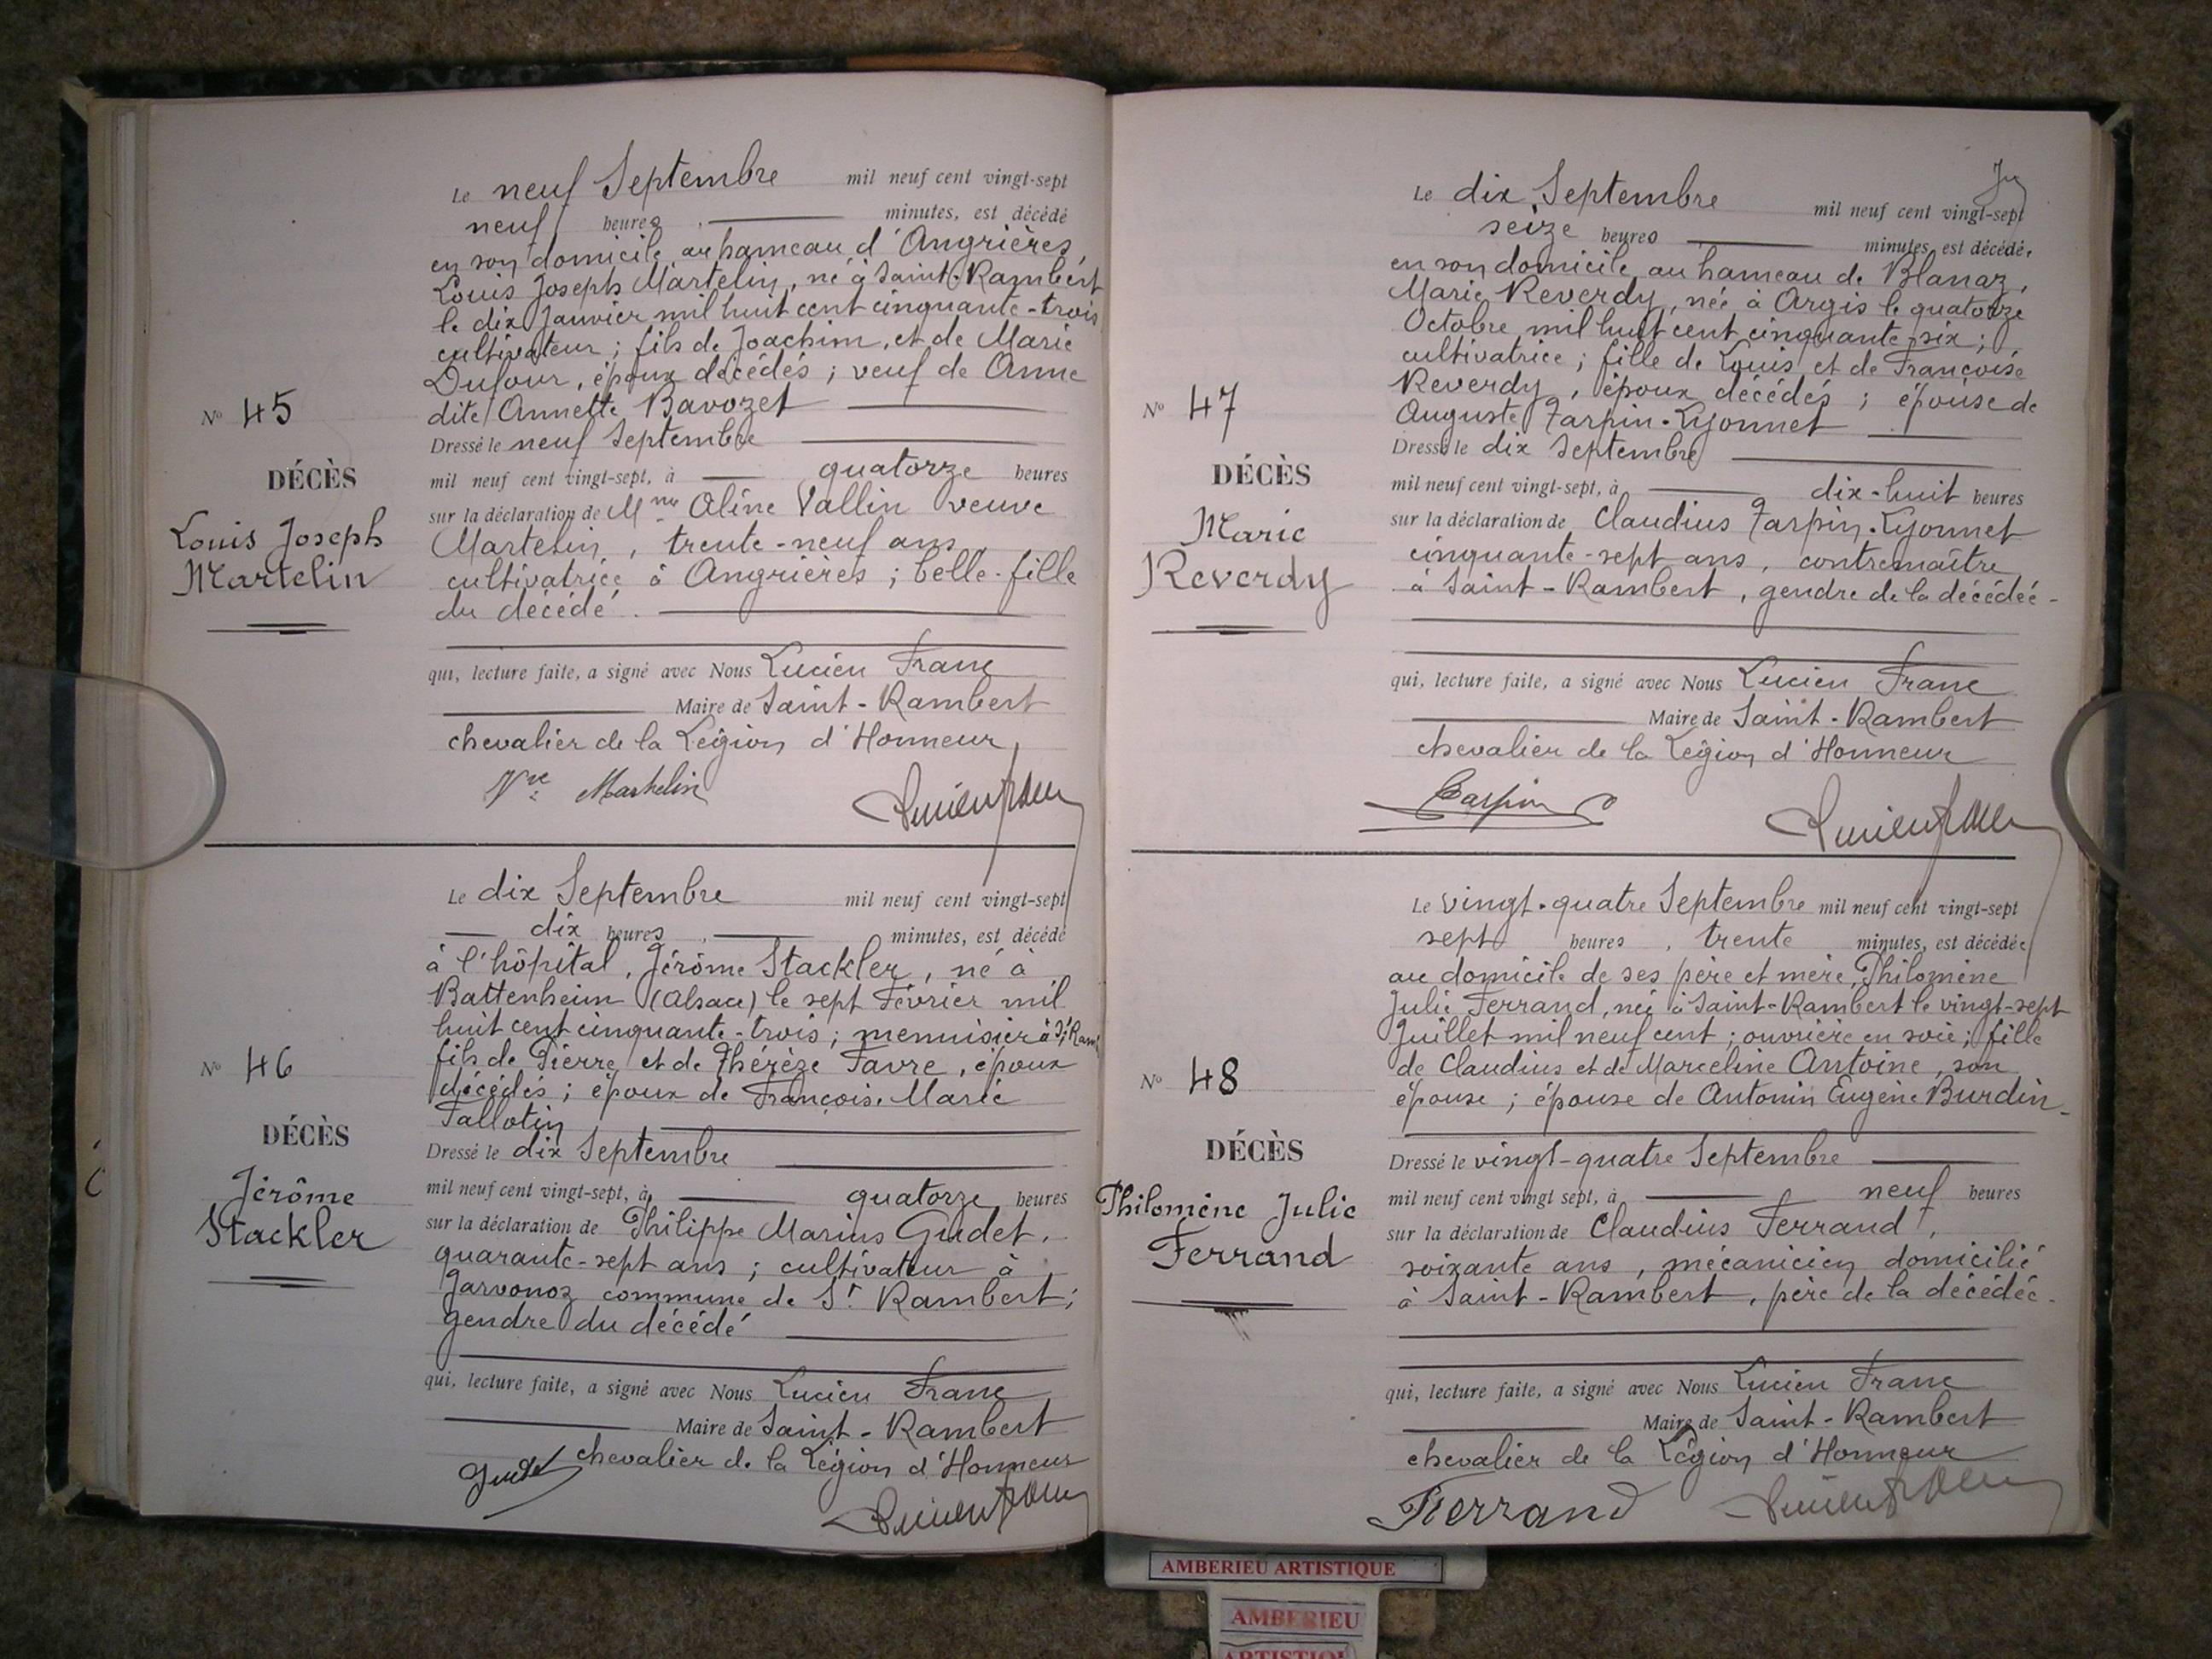 Le neuf Septembre mil neuf cent vingt-sept
neuf heures, minutes, est décédé
en son domicile au hameau d'Angrières,
Louis Joseph Martelin, né à Saint-Rambert
le dix Janvier mil huit cent cinquante-trois
cultivateur ; fils de Joachim, et de Marie
Dufour, époux décédés ; veuf de Anne
dite Annette Bavozet
Nº 45
Dressé le neuf Septembre
DÉCÈS
mil neuf cent vingt-sept, à quatorze heures
sur la déclaration de Mme Aline Vallin veuve
Louis Joseph
Martelin
Martelin, trente-neuf ans,
cultivatrice à Angrières ; belle-fille
du décédé.
qui, lecture faite, a signé avec Nous Lucien Franc
Maire de Saint-Rambert
chevalier de la Légion d'Honneur,
Vve Martelin
Le dix Septembre mil neuf cent vingt-sept
dix heures, minutes, est décédé
à l'hôpital, Jérôme Stackler, né à
Battenheim (Alsace) le sept Février mil
huit cent cinquante-trois ; menuisier à St Ramb
fils de Pierre et de Thérèze Favre, époux
décédés ; époux de Françoise Marie
Tallotin
Nº 46
Dressé le dix Septembre
DÉCÈS
mil neuf cent vingt-sept, à quatorze heures
Jérôme
Stackler
sur la déclaration de Philippe Marius Gudet,
quarante-sept ans ; cultivateur à
Javornoz commune de St Rambert ;
gendre du décédé
qui, lecture faite, a signé avec Nous Lucien Franc
Maire de Saint-Rambert
chevalier de la Légion d'Honneur
Gudet
Le dix Septembre mil neuf cent vingt-sept
seize heures minutes, est décédée
en son domicile au hameau de Blanaz,
Marie Reverdy, née à Argis le quatorze
Octobre mil huit cent cinquante-six ;
cultivatrice ; fille de Louis et de Françoise
Reverdy, époux décédés ; épouse de
Auguste Tarpin-Lyonnet
Nº 47
Dressé le dix Septembre
DÉCÈS
mil neuf cent vingt-sept, à dix-huit heures
Marie
Reverdy
sur la déclaration de Claudius Tarpin-Lyonnet
cinquante-sept ans, contremaître
à Saint-Rambert, gendre de la décédée
qui, lecture faite, a signé avec Nous Lucien Franc
Maire de Saint-Rambert
chevalier de la Légion d'Honneur
Tarpin
Le vingt-quatre Septembre mil neuf cent vingt-sept
sept heures, trente minutes, est décédée
au domicile de ses père et mère, Philomène
Julie Ferrand, née à Saint-Rambert le vingt-sept
Juillet mil neuf cent ; ouvrière en soie ; fille
de Claudius et de Marceline Antoine, son
épouse ; épouse de Antonin Eugène Burdin
Nº 48
DÉCÈS
Dressé le vingt-quatre Septembre
mil neuf cent vingt sept, à neuf heures
Philomène Julie
Ferrand
sur la déclaration de Claudius Ferrand,
soixante ans, mécanicien domicilié
à Saint-Rambert, père de la décédée
qui, lecture faite, a signé avec Nous Lucien Franc
Maire de Saint-Rambert
chevalier de la Légion d'Honneur
Ferrand
AMBERIEU ARTISTIQUE
AMBERIEU